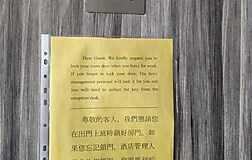 Dear Guest. We kindly request you to
lock your room door when you leave for work.
If you forget to lock your door, The hotel
management personal will lock it for you and
you will need to collect the key from the
reception desk.
尊敬的客人,我們懇請您
在出門上班時鎖好房門,如
果您忘記鎖門,酒店管理人